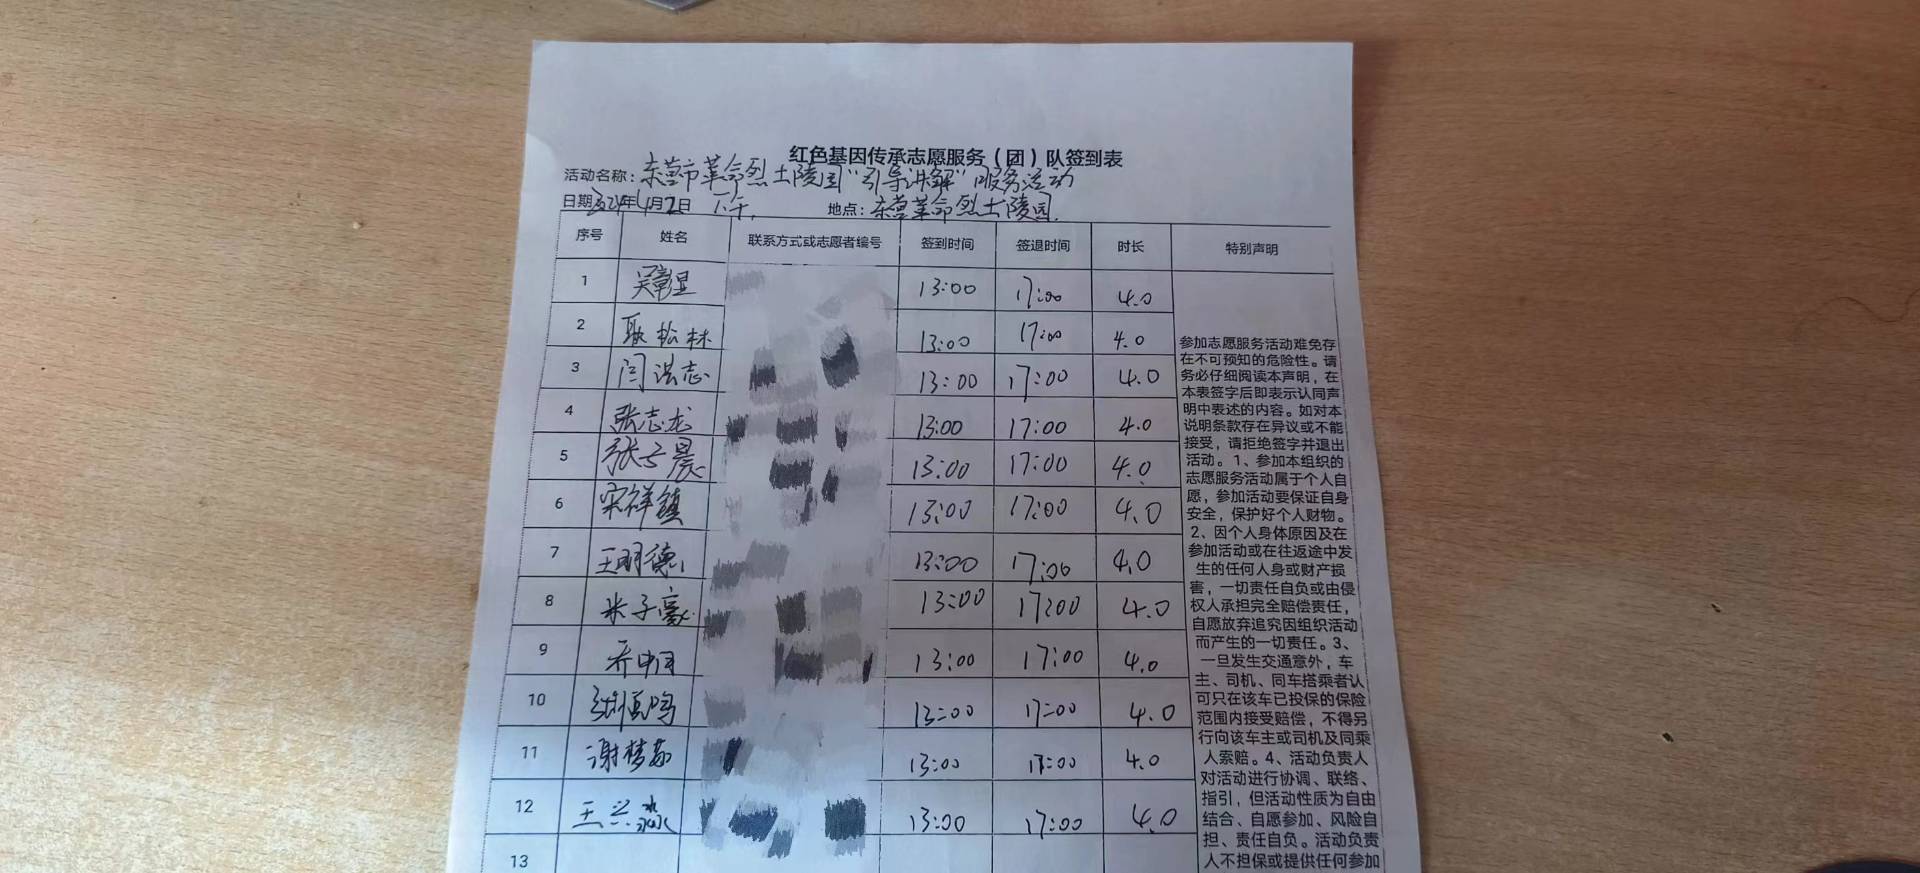 红色基因传承志愿服务（团）队签到表
活动名称：东营市革命烈士陵园“引导讲解”服务活动
日期2024年4月2日 下午 地点：东营革命烈士陵园
序号 姓名 联系方式或志愿者编号 签到时间 签退时间 时长 特别声明
1 吴彰显 13:00 17:00 4.0
2 耿松林 13:00 17:00 4.0
3 闫洪志 13:00 17:00 4.0
4 张志龙 13:00 17:00 4.0
5 张子晨 13:00 17:00 4.0
6 宋祥镇 13:00 17:00 4.0
7 王明德 13:00 17:00 4.0
8 米子豪 13:00 17:00 4.0
9 乔中同 13:00 17:00 4.0
10 13:00 17:00 4.0
11 谢梦茹 13:00 17:00 4.0
12 王兴淼 13:00 17:00 4.0
13
参加志愿服务活动难免存
在不可预知的危险性。请
务必仔细阅读本声明，在
本表签字后即表示认同声
明中表述的内容。如对本
说明条款存在异议或不能
接受，请拒绝签字并退出
活动。1、参加本组织的
志愿服务活动属于个人自
愿，参加活动要保证自身
安全，保护好个人财物。
2、因个人身体原因及在
参加活动或在往返途中发
生的任何人身或财产损
害，一切责任自负或由侵
权人承担完全赔偿责任，
自愿放弃追究因组织活动
而产生的一切责任。3、
一旦发生交通意外，车
主、司机、同车搭乘者认
可只在该车已投保的保险
范围内接受赔偿，不得另
行向该车主或司机及同乘
人索赔。4、活动负责人
对活动进行协调、联络、
指引，但活动性质为自由
结合、自愿参加、风险自
担、责任自负。活动负责
人不担保或提供任何参加